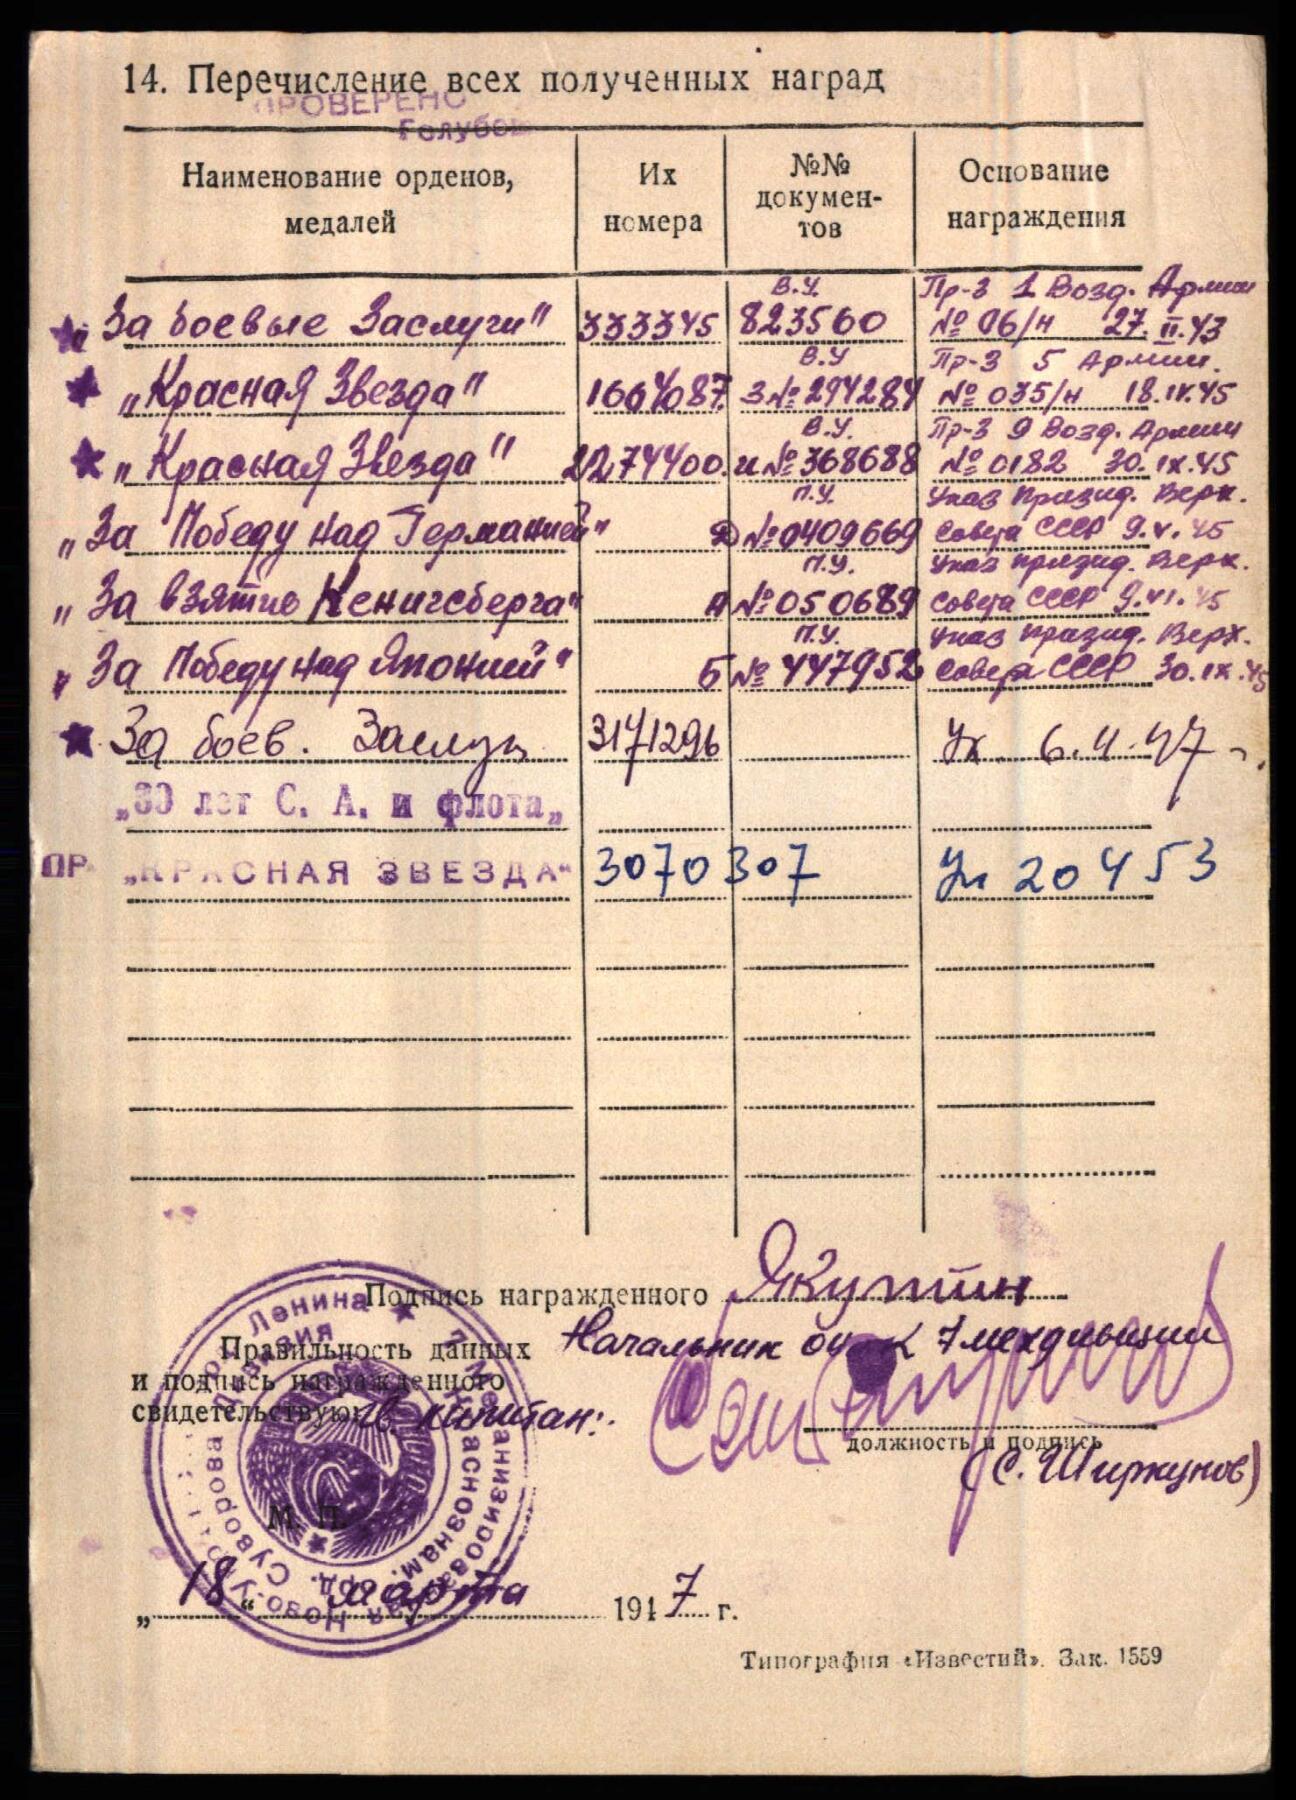 14. Перечисление всех полученных наград
ПРОВЕРЕНО
Наименование орденов, медалей
Их номера
№№ докумен-тов
Основание награждения
„За боевые Заслуги" 333345 В.У. 823560 Пр-з 1 Возд. Армии № 06/н 27.II.43
„Красная Звезда" 1664087 В.У З№294284 Пр-з 5 Армии. № 035/н 18.IX.45
„Красная Звезда" 2274400 В.У. и №368688 Пр-з 9 Возд. Армии №0182 30.IX.45
„За Победу над Германией" П.У. Д №0409669 Указ Презид. Верх. Совета СССР 9.V.45
„За взятие Кенигсберга" П.У. А №050689 Указ презид. Верх. Совета СССР 9.VI.45
„За Победу над Японией" П.У. Б №447952 Указ презид. Верх. Совета СССР 30.IX.45
За боев. Заслуги 3171296 Ук. 6.4.47
„30 лет С. А. и флота„
ПР „КРАСНАЯ ЗВЕЗДА" 3070307 Ук 20453
Подпись награжденного Якутин
Правильность данных Начальник 7 мехдивизии
и подпись награжденного
свидетельствую: Гв. капитан:
должность и подпись
(С. Ширкунов)
М. П.
„18" марта 1947 г.
Типография «Известий». Зак. 1559